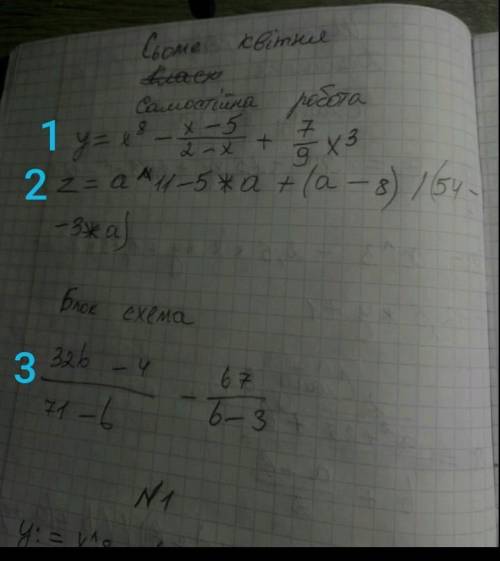 Сьоме квітня
Самостійна робота
1 y = x⁸ - (x-5)/(2-x) + 7/9 x³
2 z = a^11-5*a + (a-8) / (54-
-3*a)
Блок схема
3 (32b - 4)/(71-b) - 67/(b-3)
N1
y:=